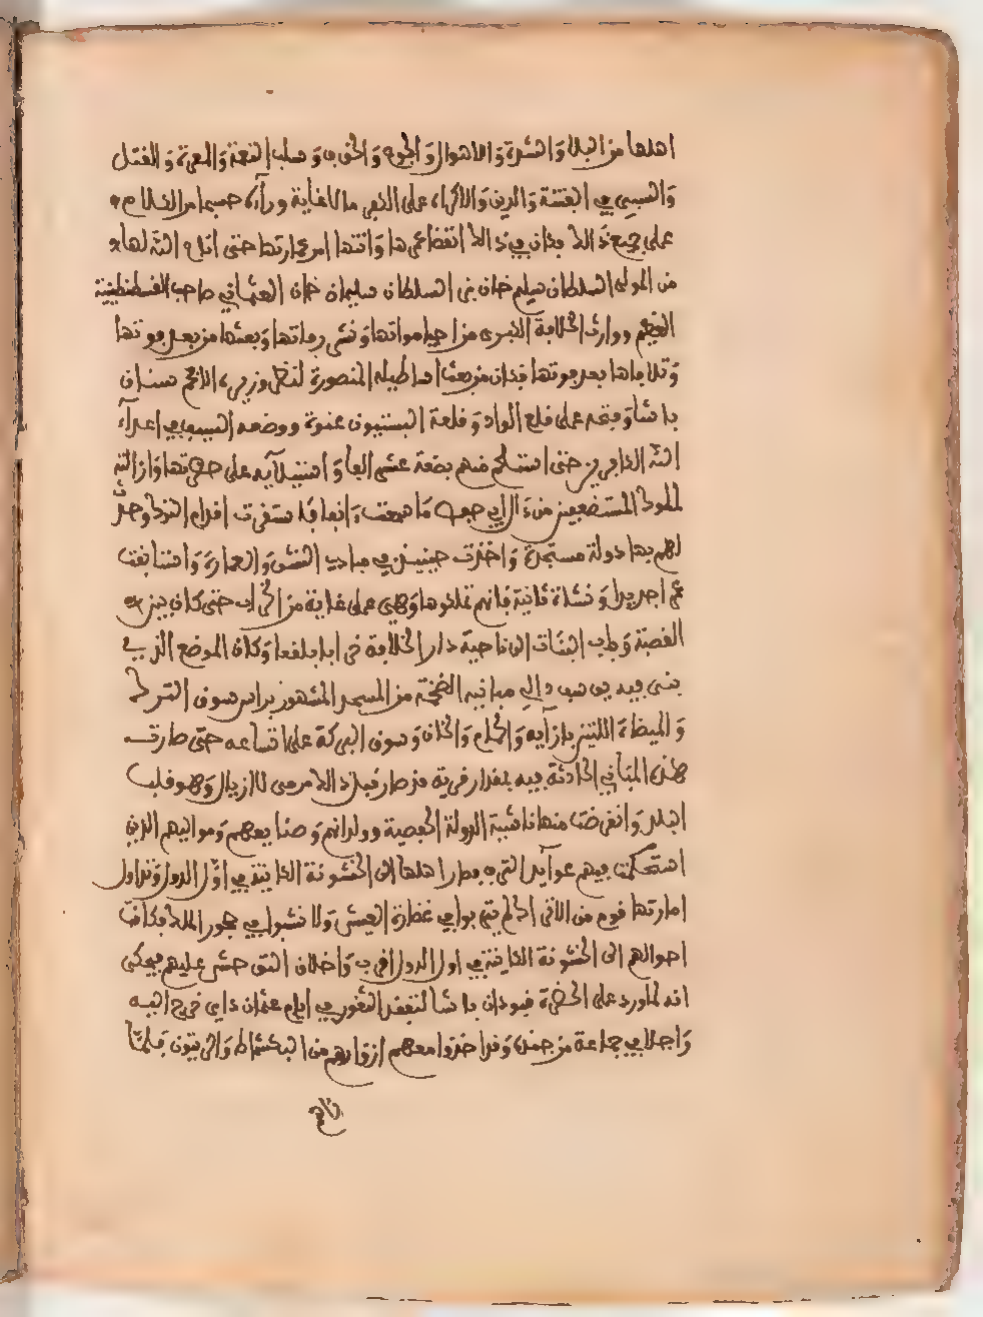 اهلها من البلاء والشدة والاهوال والجوع والخوف وسلب النعمة والمعرة والقتل
والسبي في الفتنة والدين والاكراه على الكفر ما لا غاية وراءه حسبما مر الكلام
على جميع ذلك فكان في ذلك انقضاء عمرها وانتهاء امر عمارتها حتى اتاح الله لها
من المولى السلطان سليم خان بن السلطان سليمان خان العثماني صاحب القسطنطينية
العظمى ووارث الخلافة الكبرى من احيا مواتها ونشر رفاتها وبعثها من بعد موتها
وتلافاها بعد فوتها فكان من بعث اساطيله المنصورة لنظر وزيره الافخم سنان
باشا وفتحه على قلع الواد وقلعة البستيون عنوة ووضعه السيف في اعداء
الله الكافرين حتى استلحم منهم بضعة عشر الفا واستيلائه على حضرتها وازالته
لملوك المستضعفين من ءال ابي حفص ما سمعت ءانفا فاستقرت اقدام الترك وحدثت
لهم بها دولة مستجدة واخذت حينئذ في مبادئ النشو والعمارة واستانفت
عمرا جديدا ونشاة ثانية فانهم تملكوها وهي على غاية من الخراب حتى كان بين
القصبة وباب البنات الى ناحية دار الخلافة خرابا بلقعا وكان الموضع الذي
بنى فيه يوسف داي مبانيه الضخمة من المسجد المشهور براس سوق الترك
والميضاة اللتين بازائه والحمام والخان وسوق البركة على اتساعه حتى صارت
هذه المباني الحادثة فيه بمقدار قرية من صار قبل ذلك مرمى للازبال وهو قلب
البلد وانقرضت منها ناشية الدولة الحفصية وولدانهم وصنايعهم ومواليهم الذين
استحكمت فيهم عوايد الترف فصار اهلها الى الخشونة الكاينة في اول الدول وتداول
امارتها قوم من الاتراك لم يتربوا في غضارة العيش ولا نشوا في حجور الملك فكانت
احوالهم الى الخشونة الكاينة في اول الدول اقرب واخلاق البدو حشر عليهم فيحكى
انه لما ورد على الحضرة قبودان باشا لتفقد الثغور في ايام عثمان داي خرج اليه
واجلا في جماعة من جنده وقد اخذوا معهم ازوادهم من البكشماط والزيتون فلما